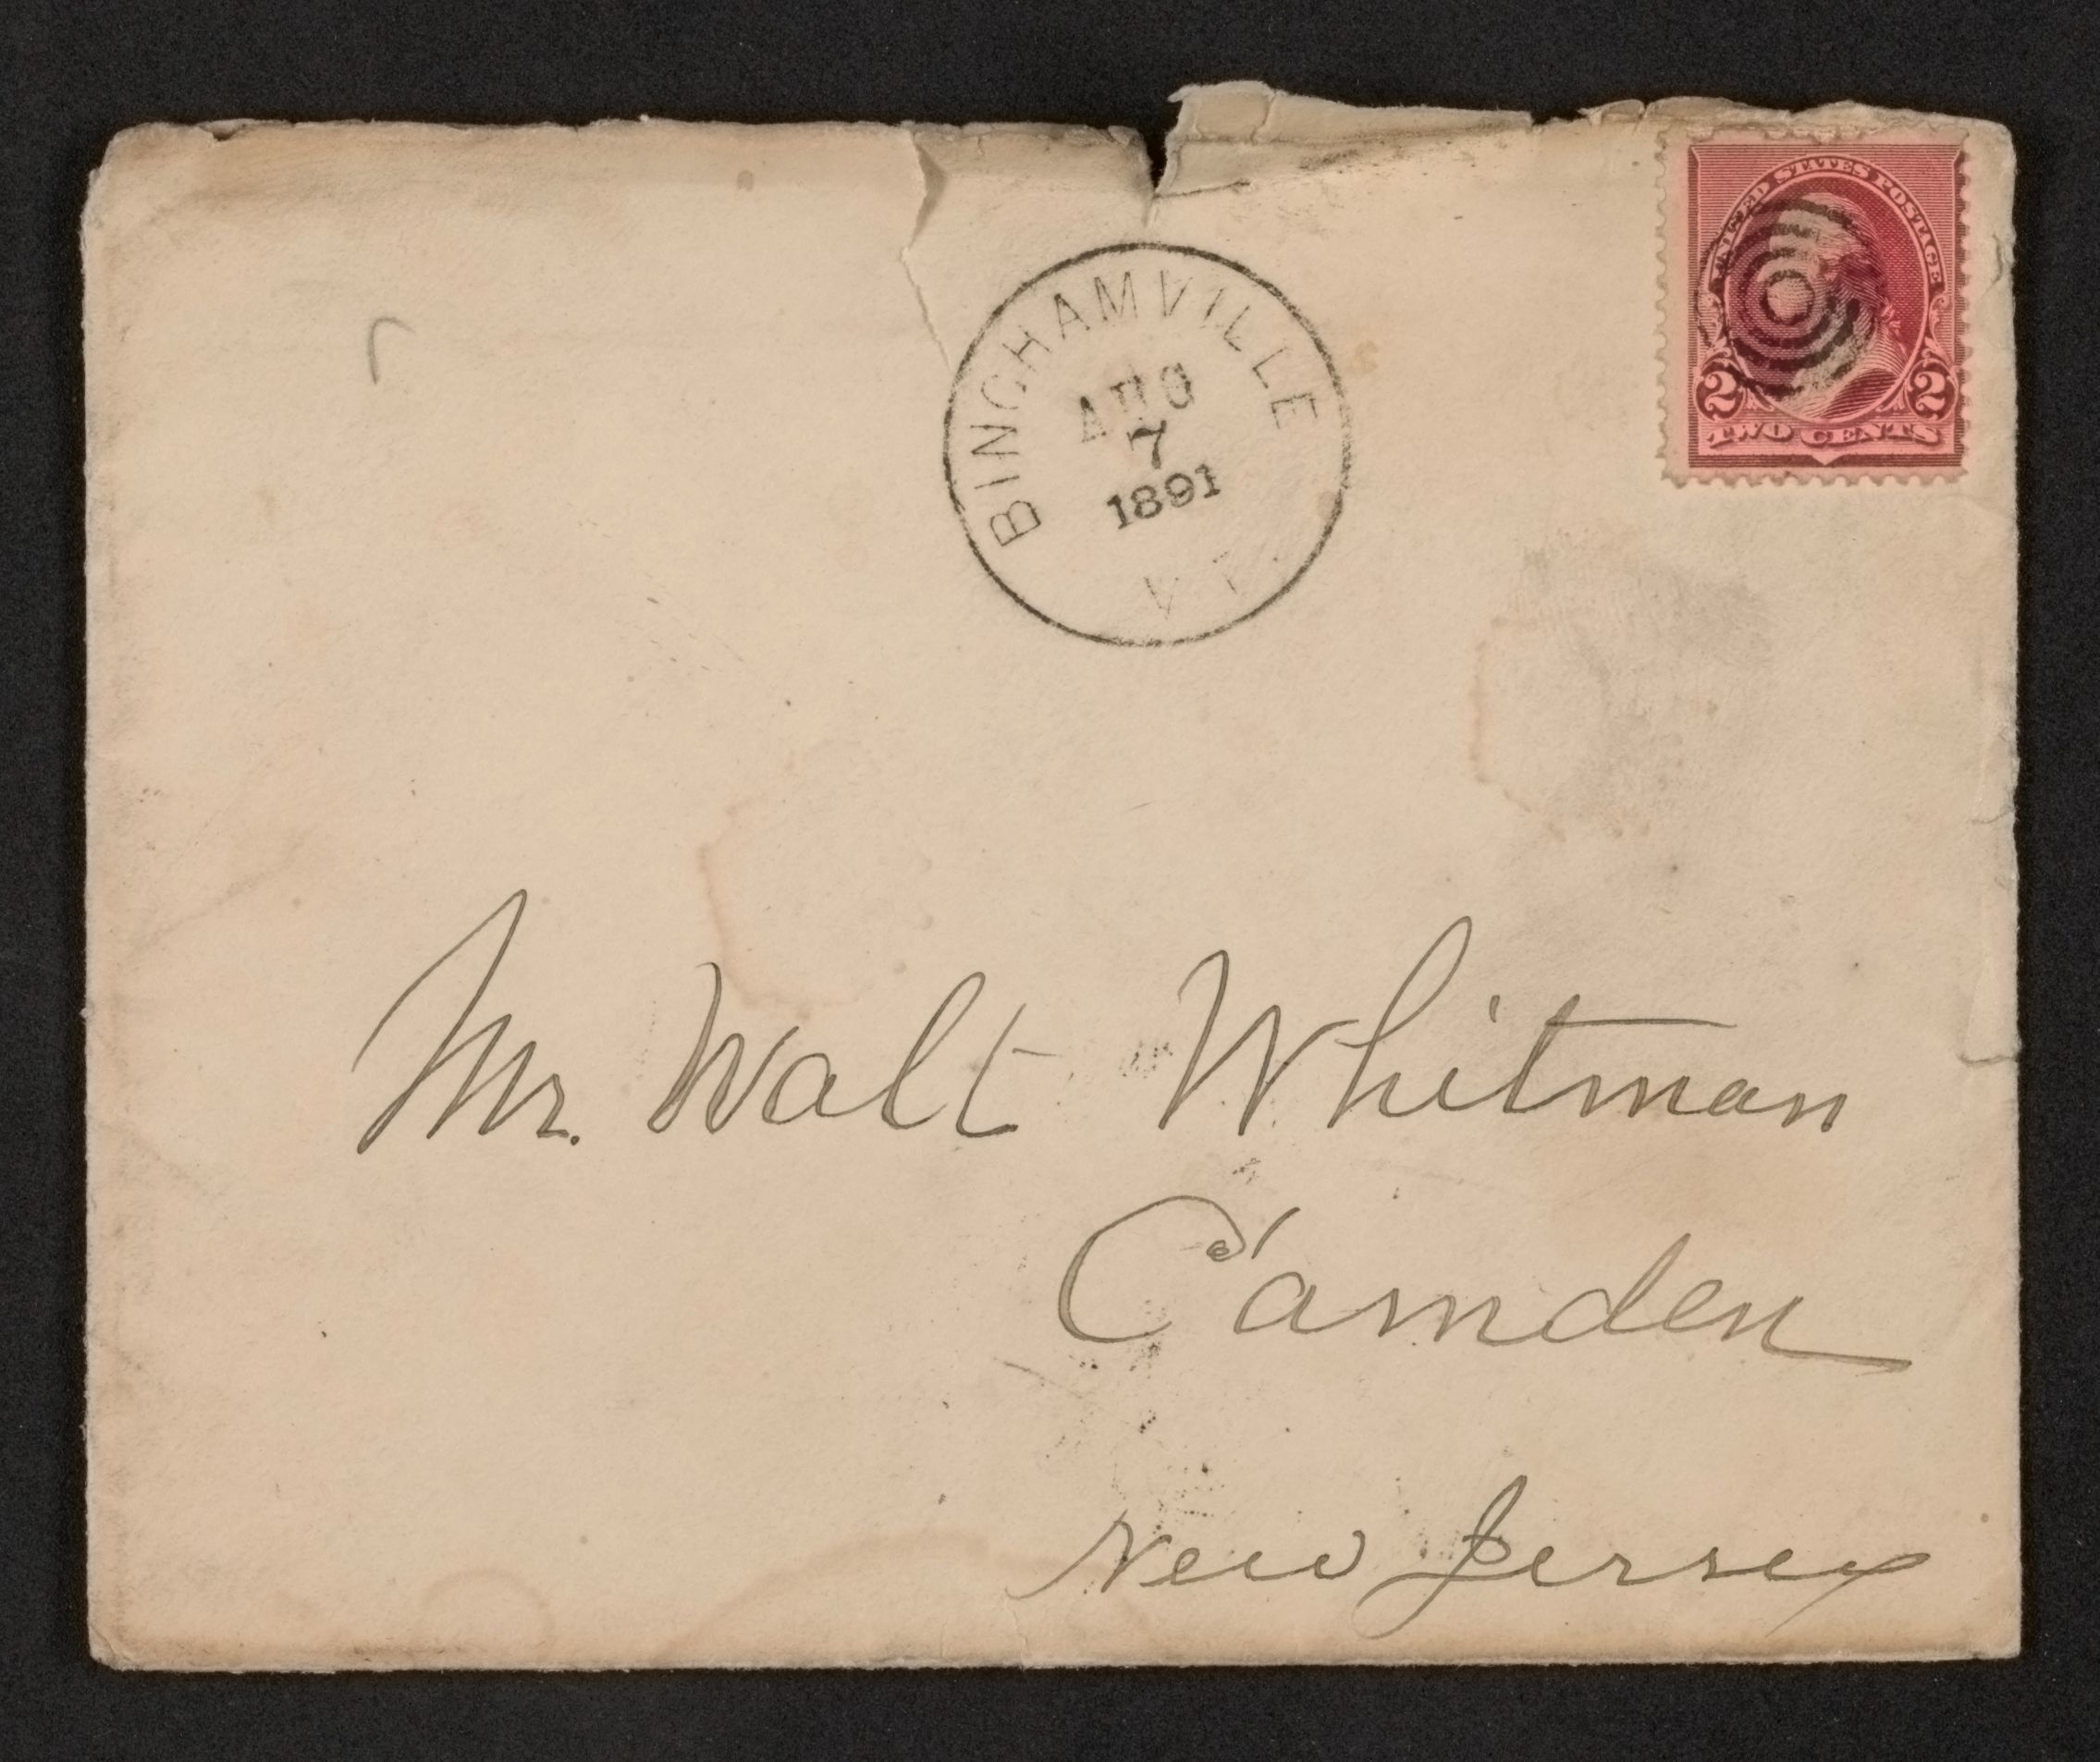 BINGHAMVILLE
AUG
7
1891
VT.
UNITED STATES POSTAGE
2 2
TWO CENTS
Mr. Walt Whitman
Camden
New Jersey